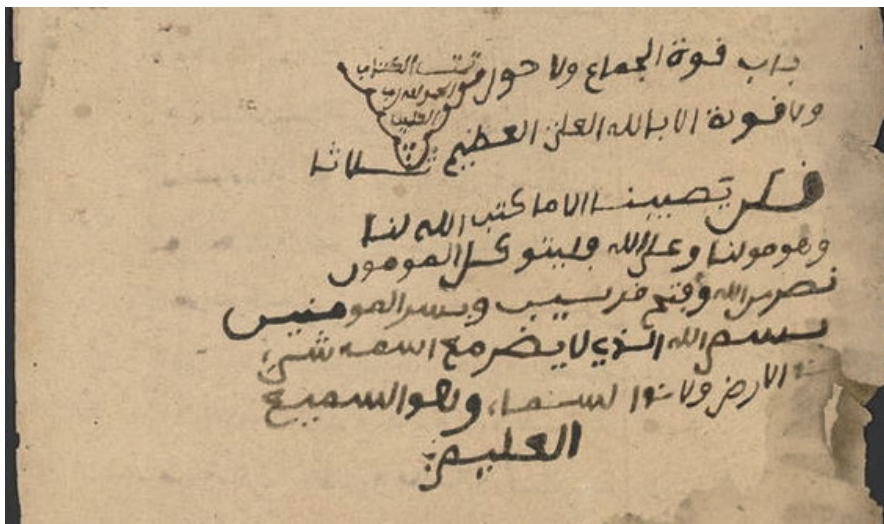 باب قوة الجماع ولا حول
ولا قوة الا بالله العلي العظيم ثلاثا
الكتاب
الحمد لله رب
العلمين
قل لن تصيبنا الا ما كتب الله لنا
وهو مولنا وعلى الله فليتوكل المومنون
نصر من الله وفتح قريب وبشر المومنين
بسم الله الذي لا يضر مع اسمه شيء
في الارض ولا في السماء وهو السميع
العليم